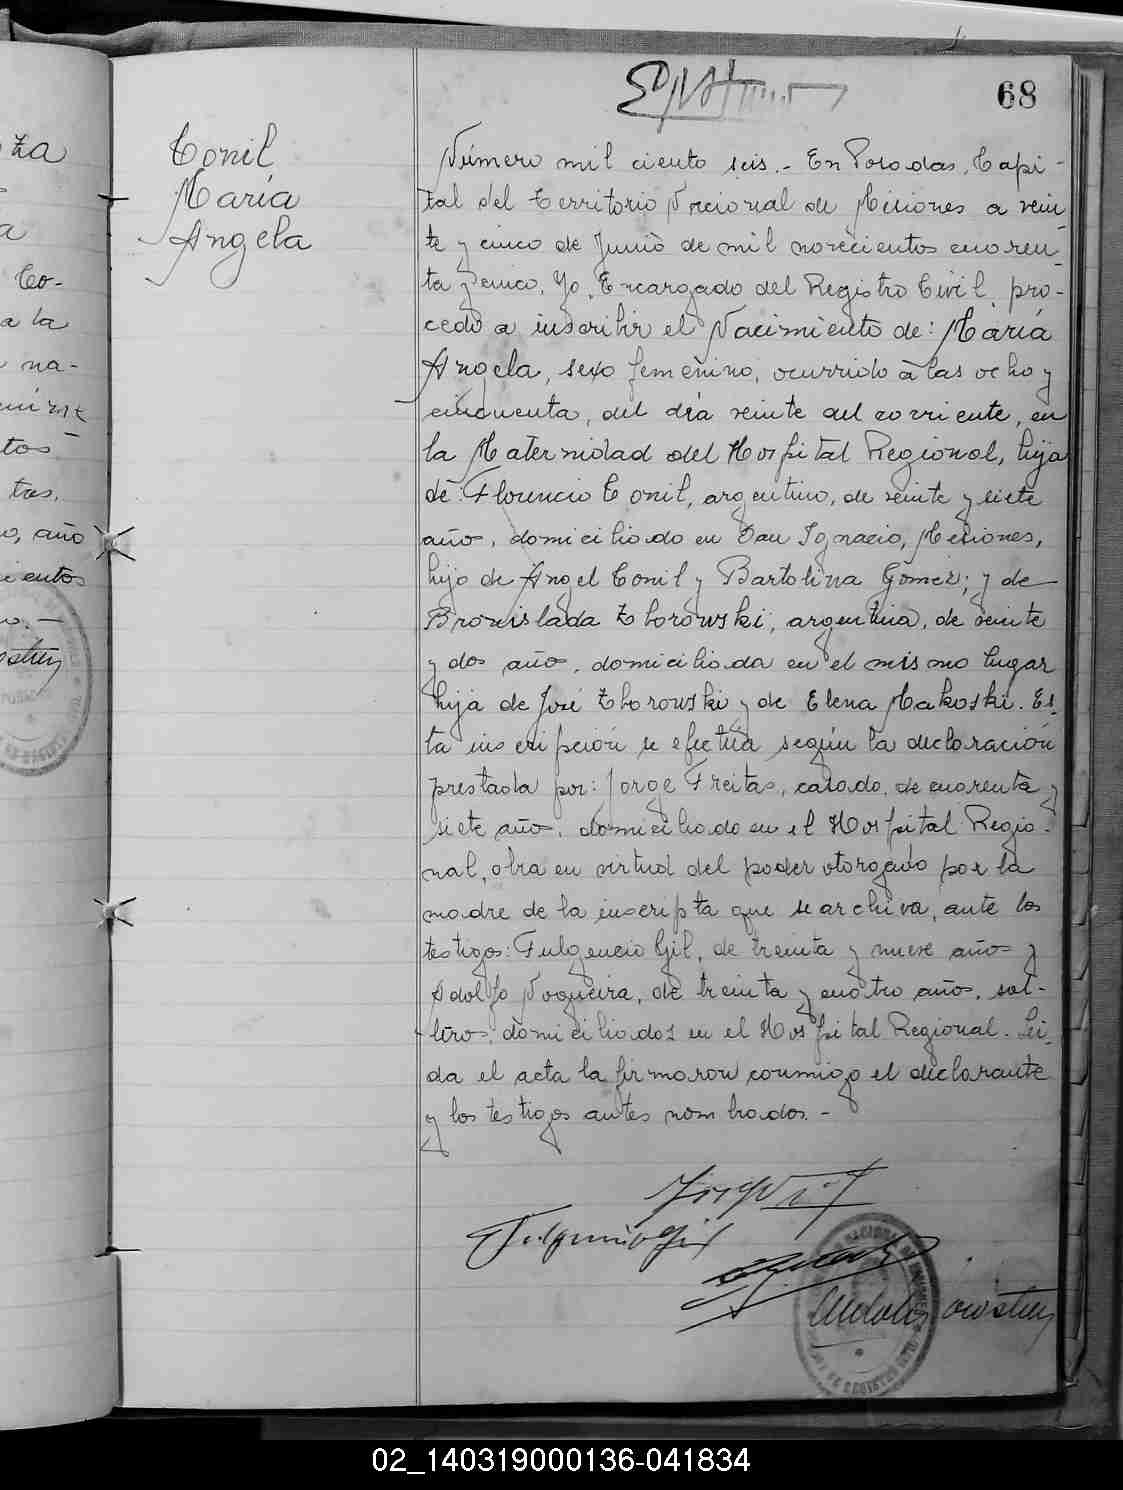 68
Conil
María
Angela
Número mil ciento seis.- En Posadas, Capi-
tal del Territorio Nacional de Misiones a vein
te y cinco de Junio de mil novecientos cuaren-
ta y cinco, Yo, Encargado del Registro Civil, pro-
cedo a inscribir el Nacimiento de: María
Angela, sexo femenino, ocurrido a las ocho y
cincuenta, del día veinte del corriente, en
la Maternidad del Hospital Regional, hija
de: Florencio Conil, argentino, de veinte y siete
años, domiciliado en San Ignacio, Misiones,
hijo de Angel Conil y Bartolina Gomez; y de
Bronislada Zborowski, argentina, de veinte
y dos años, domiciliada en el mismo lugar
hija de José Zborowski y de Elena Makoski. Es-
ta inscripción se efectúa según la declaración
prestada por: Jorge Freitas, casado, de cuarenta y
siete años, domiciliado en el Hospital Regio-
nal, obra en virtud del poder otorgado por la
madre de la inscripta que se archiva, ante los
testigos: Fulgencio Gil, de treinta y nueve años y
Adolfo Nogueira, de treinta y cuatro años, sol-
teros, domiciliados en el Hospital Regional. Leí-
da el acta la firmaron conmigo el declarante
y los testigos antes nombrados.-
Fulgencio Gil
za
a
Co-
a la
na-
tos
tres,
o, año
cientos
02_140319000136-041834